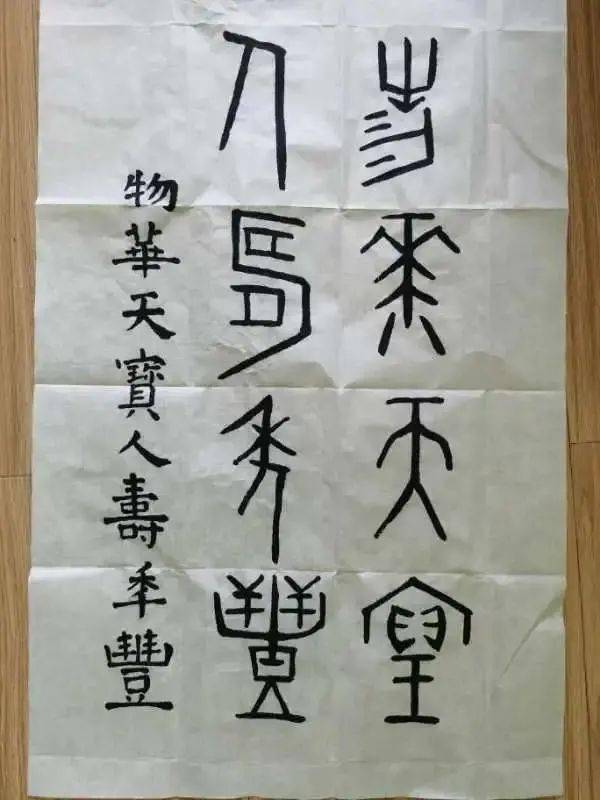 物華天寶
人壽年豐
物華天寶人壽年豐